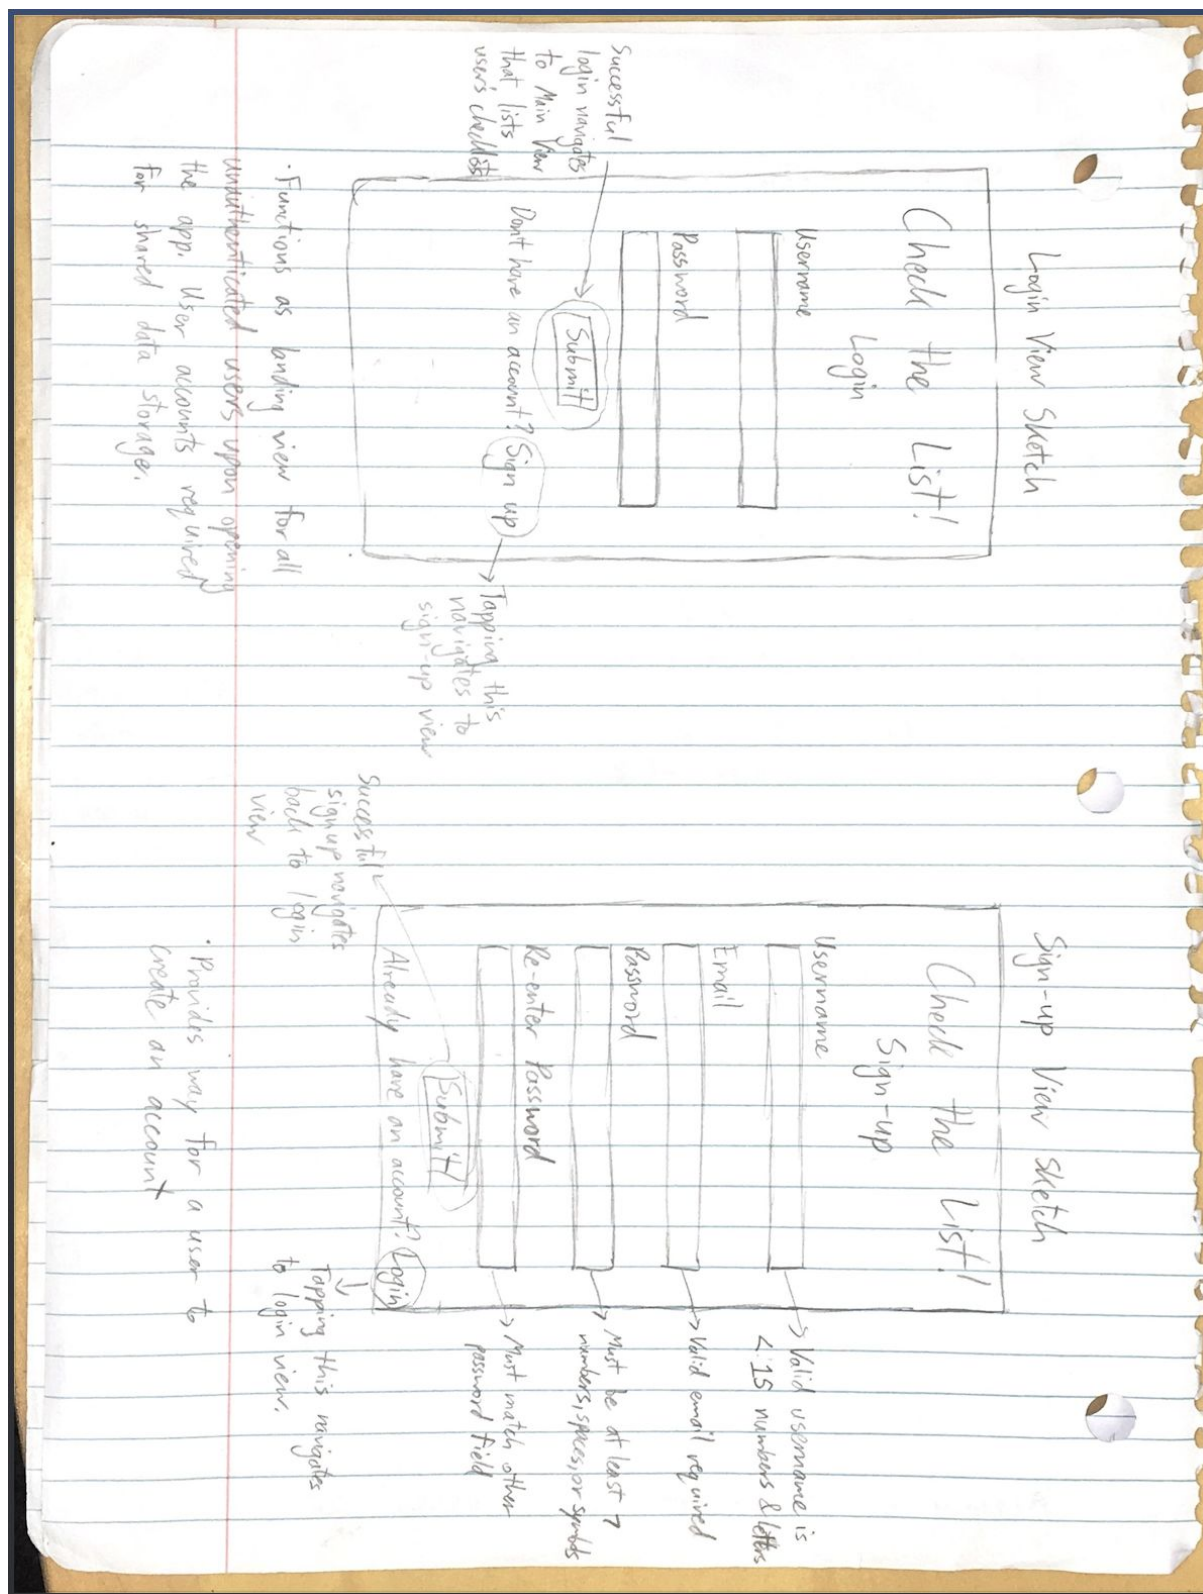 Login View Sketch
Check the List!
Login
Username
Password
Submit
Don't have an account? Sign up
Successful
login navigates
to Main View
that lists
user's checklists
Tapping this
navigates to
sign-up view
· Functions as landing view for all
unauthenticated users upon opening
the app. User accounts required
for shared data storage.
Sign-up View Sketch
Check the List!
Sign-up
Username
Email
Password
Re-enter Password
Submit
Already have an account? Login
Valid username is
<15 numbers & letters
Valid email required
Must be at least 7
numbers, spaces, or symbols
Must match other
password field
Successful
sign up navigates
back to login
view
Tapping this navigates
to login view.
· Provides way for a user to
create an account